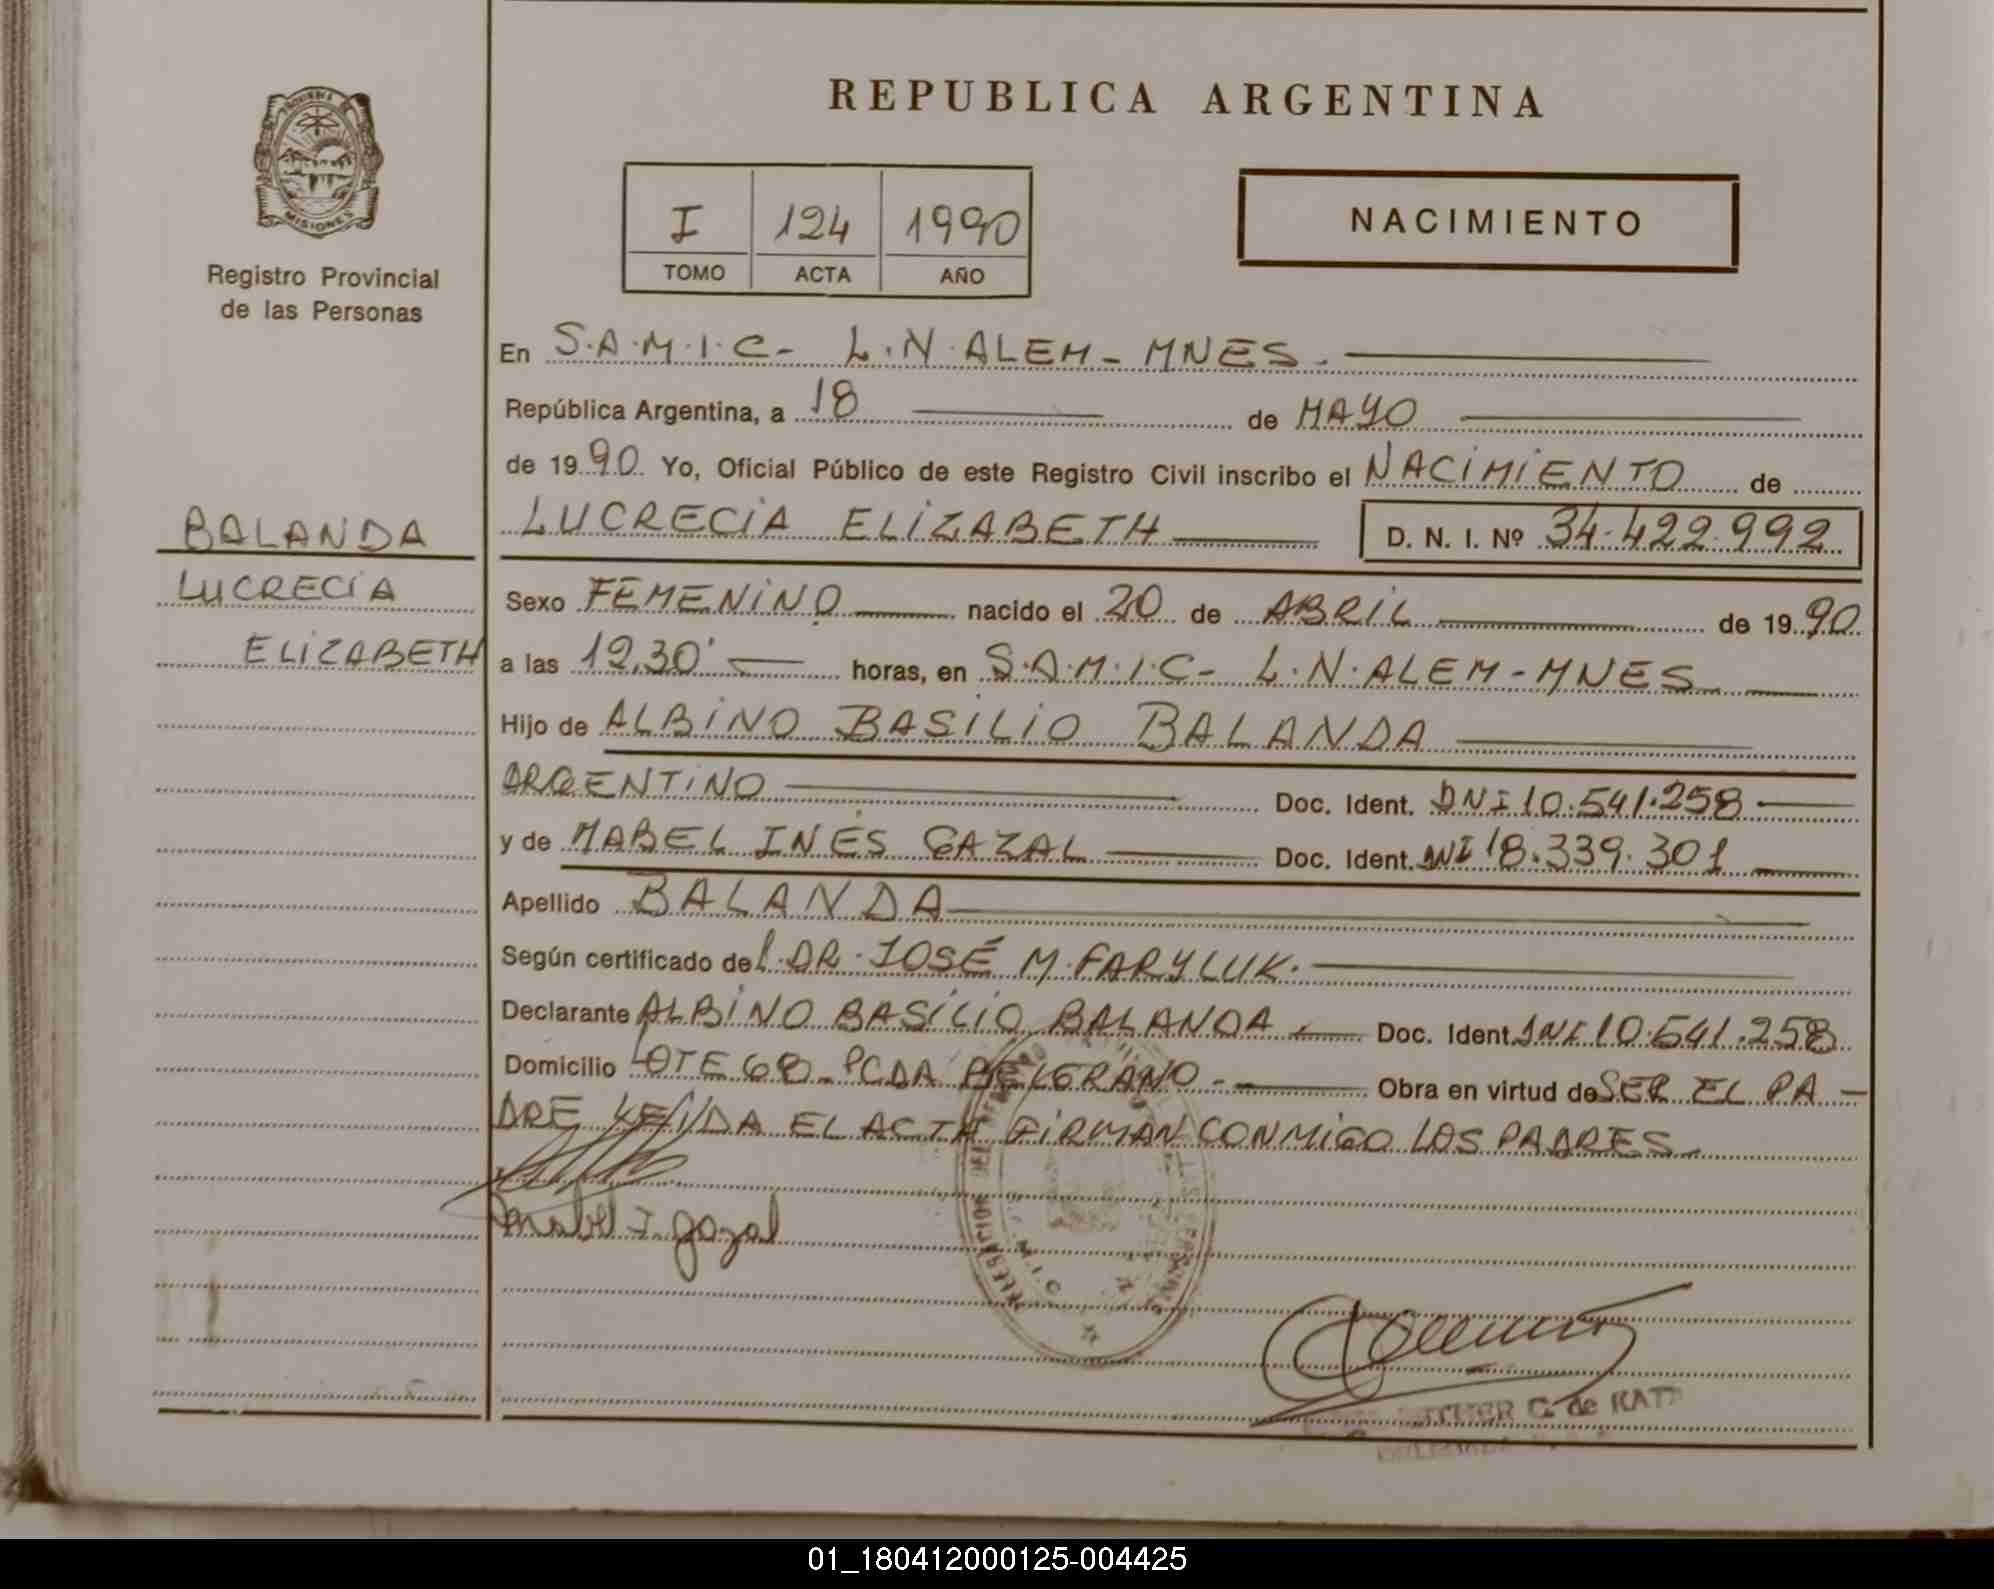 REPUBLICA ARGENTINA
MISIONES
Registro Provincial
de las Personas
I 124 1990
TOMO ACTA AÑO
NACIMIENTO
En S.A.M.I.C- L.N.ALEM-MNES.
República Argentina, a 18 de MAYO
de 1990 Yo, Oficial Público de este Registro Civil inscribo el NACIMIENTO de
LUCRECIA ELIZABETH D. N. I. Nº 34.422.992
BALANDA
LUCRECIA
ELIZABETH
Sexo FEMENINO nacido el 20 de ABRIL de 1990
a las 12,30' horas, en S.A.M.I.C- L.N.ALEM-MNES
Hijo de ALBINO BASILIO BALANDA
ARGENTINO Doc. Ident. DNI 10.541.258
y de MABEL INÉS GAZAL Doc. Ident. DNI 18.339.301
Apellido BALANDA
Según certificado del.DR.JOSÉ M.FARYLUK.
Declarante ALBINO BASILIO BALANDA Doc. Ident. DNI 10.541.258
Domicilio LOTE 68- PCDA BELGRANO- Obra en virtud de SER EL PA-
DRE LEIDA EL ACTA FIRMAN CONMIGO LOS PADRES-
Mabel I. Gazal
DELEGACION DEL
ESTHER C. de KATZ
01_180412000125-004425